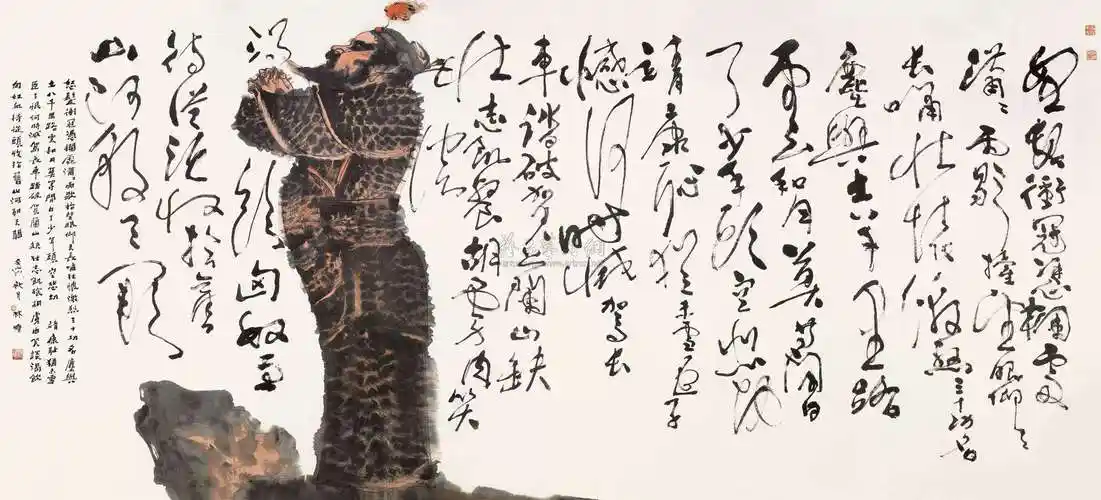 怒髮衝冠憑欄處
瀟瀟雨歇擡望眼仰天
長嘯壯懷激烈三十功名
塵與土八千里路
雲和月莫等閒白
了少年頭空悲切
靖康恥猶未雪臣子
憾何時滅駕長
車踏破賀蘭山缺
壯志飢餐胡虜肉笑
談渴
飲匈奴血
待從頭收拾舊
山河朝天闕
怒髮衝冠憑欄處瀟瀟雨歇擡望眼仰天長嘯壯懷激烈三十功名塵與
土八千里路雲和月莫等閒白了少年頭空悲切 靖康恥猶未雪
臣子恨何時滅駕長車踏破賀蘭山缺壯志飢餐胡虜肉笑談渴飲
匈奴血待從頭收拾舊山河朝天闕